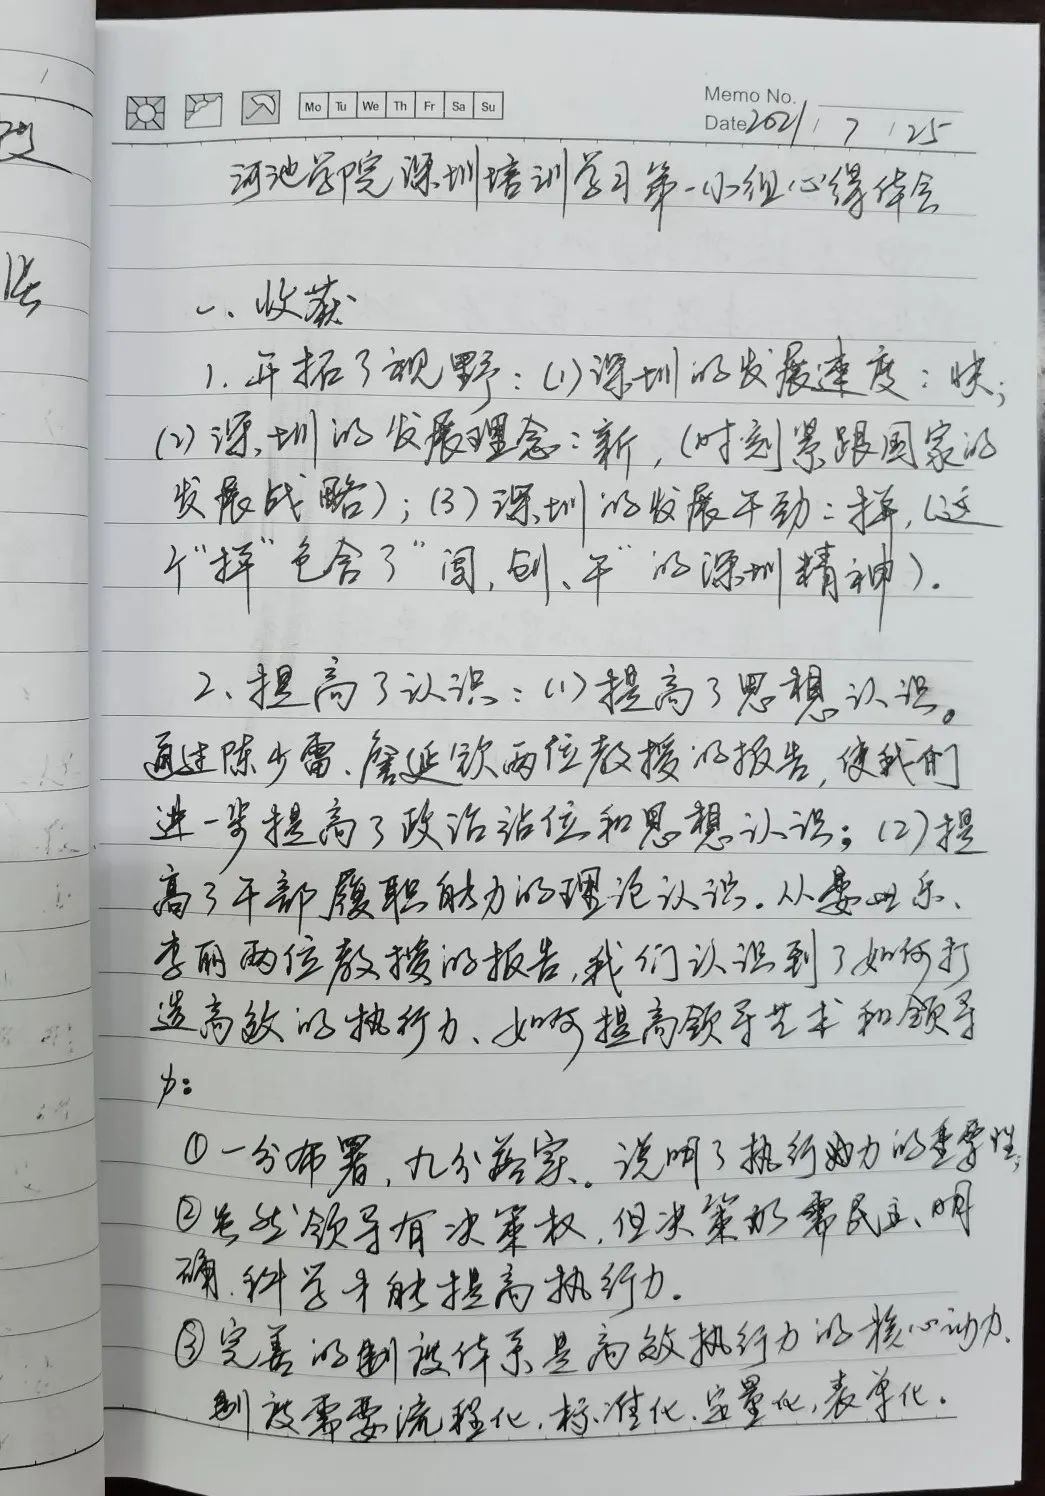 Mo Tu We Th Fr Sa Su
Memo No.
Date 2021 / 7 / 25
河池学院深圳培训学习第一小组心得体会
一、收获
1. 开拓了视野：(1)深圳的发展速度：快；
(2)深圳的发展理念：新，(时刻紧跟国家的
发展战略)；(3)深圳的发展干劲：拼，(这
个“拼”包含了“闯、创、干”的深圳精神)。
2、提高了认识：(1)提高了思想认识。
通过陈少雷、詹延钦两位教授的报告，使我们
进一步提高了政治站位和思想认识；(2)提
高了干部履职能力的理论认识。从娄世乐、
李丽两位教授的报告，我们认识到了如何打
造高效的执行力、如何提高领导艺术和领导
力：
①一分布署，九分落实。说明了执行力的重要性；
②虽然领导有决策权，但决策需民主、明
确、科学才能提高执行力。
③完善的制度体系是高效执行力的核心动力、
制度需要流程化、标准化、定量化、表单化。